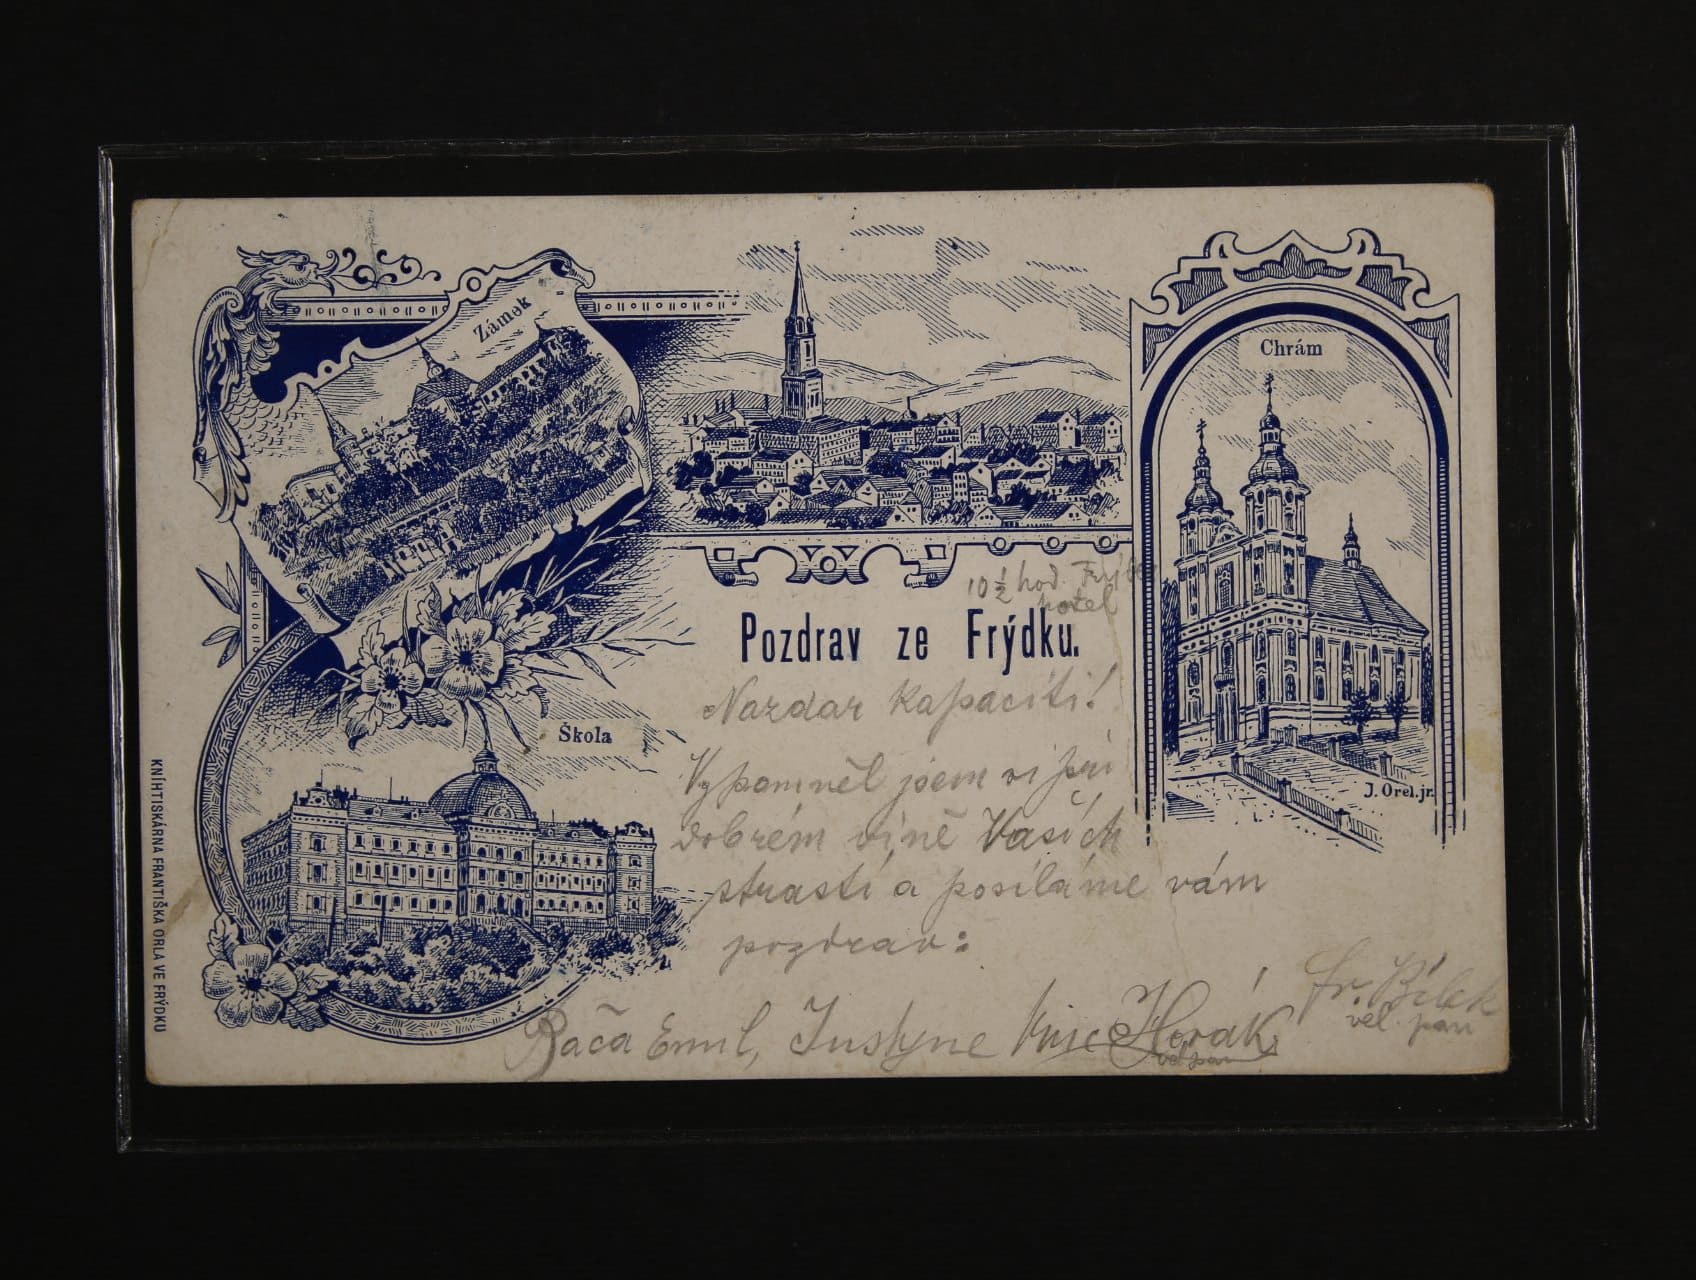 Zámek
Chrám
10 ½ hod
hotel
Pozdrav ze Frýdku.
Nazdar kapacíti!
Škola
Vzpomněl jsem si při
dobrém víně Vašich
strastí a posíláme vám
pozdrav:
J. Orel.jr.
KNÍHTISKÁRNA FRANTIŠKA ORLA VE FRÝDKU
Fr. Bílek
vel. pan
Bača Emil, Justyne Horák
vel pan